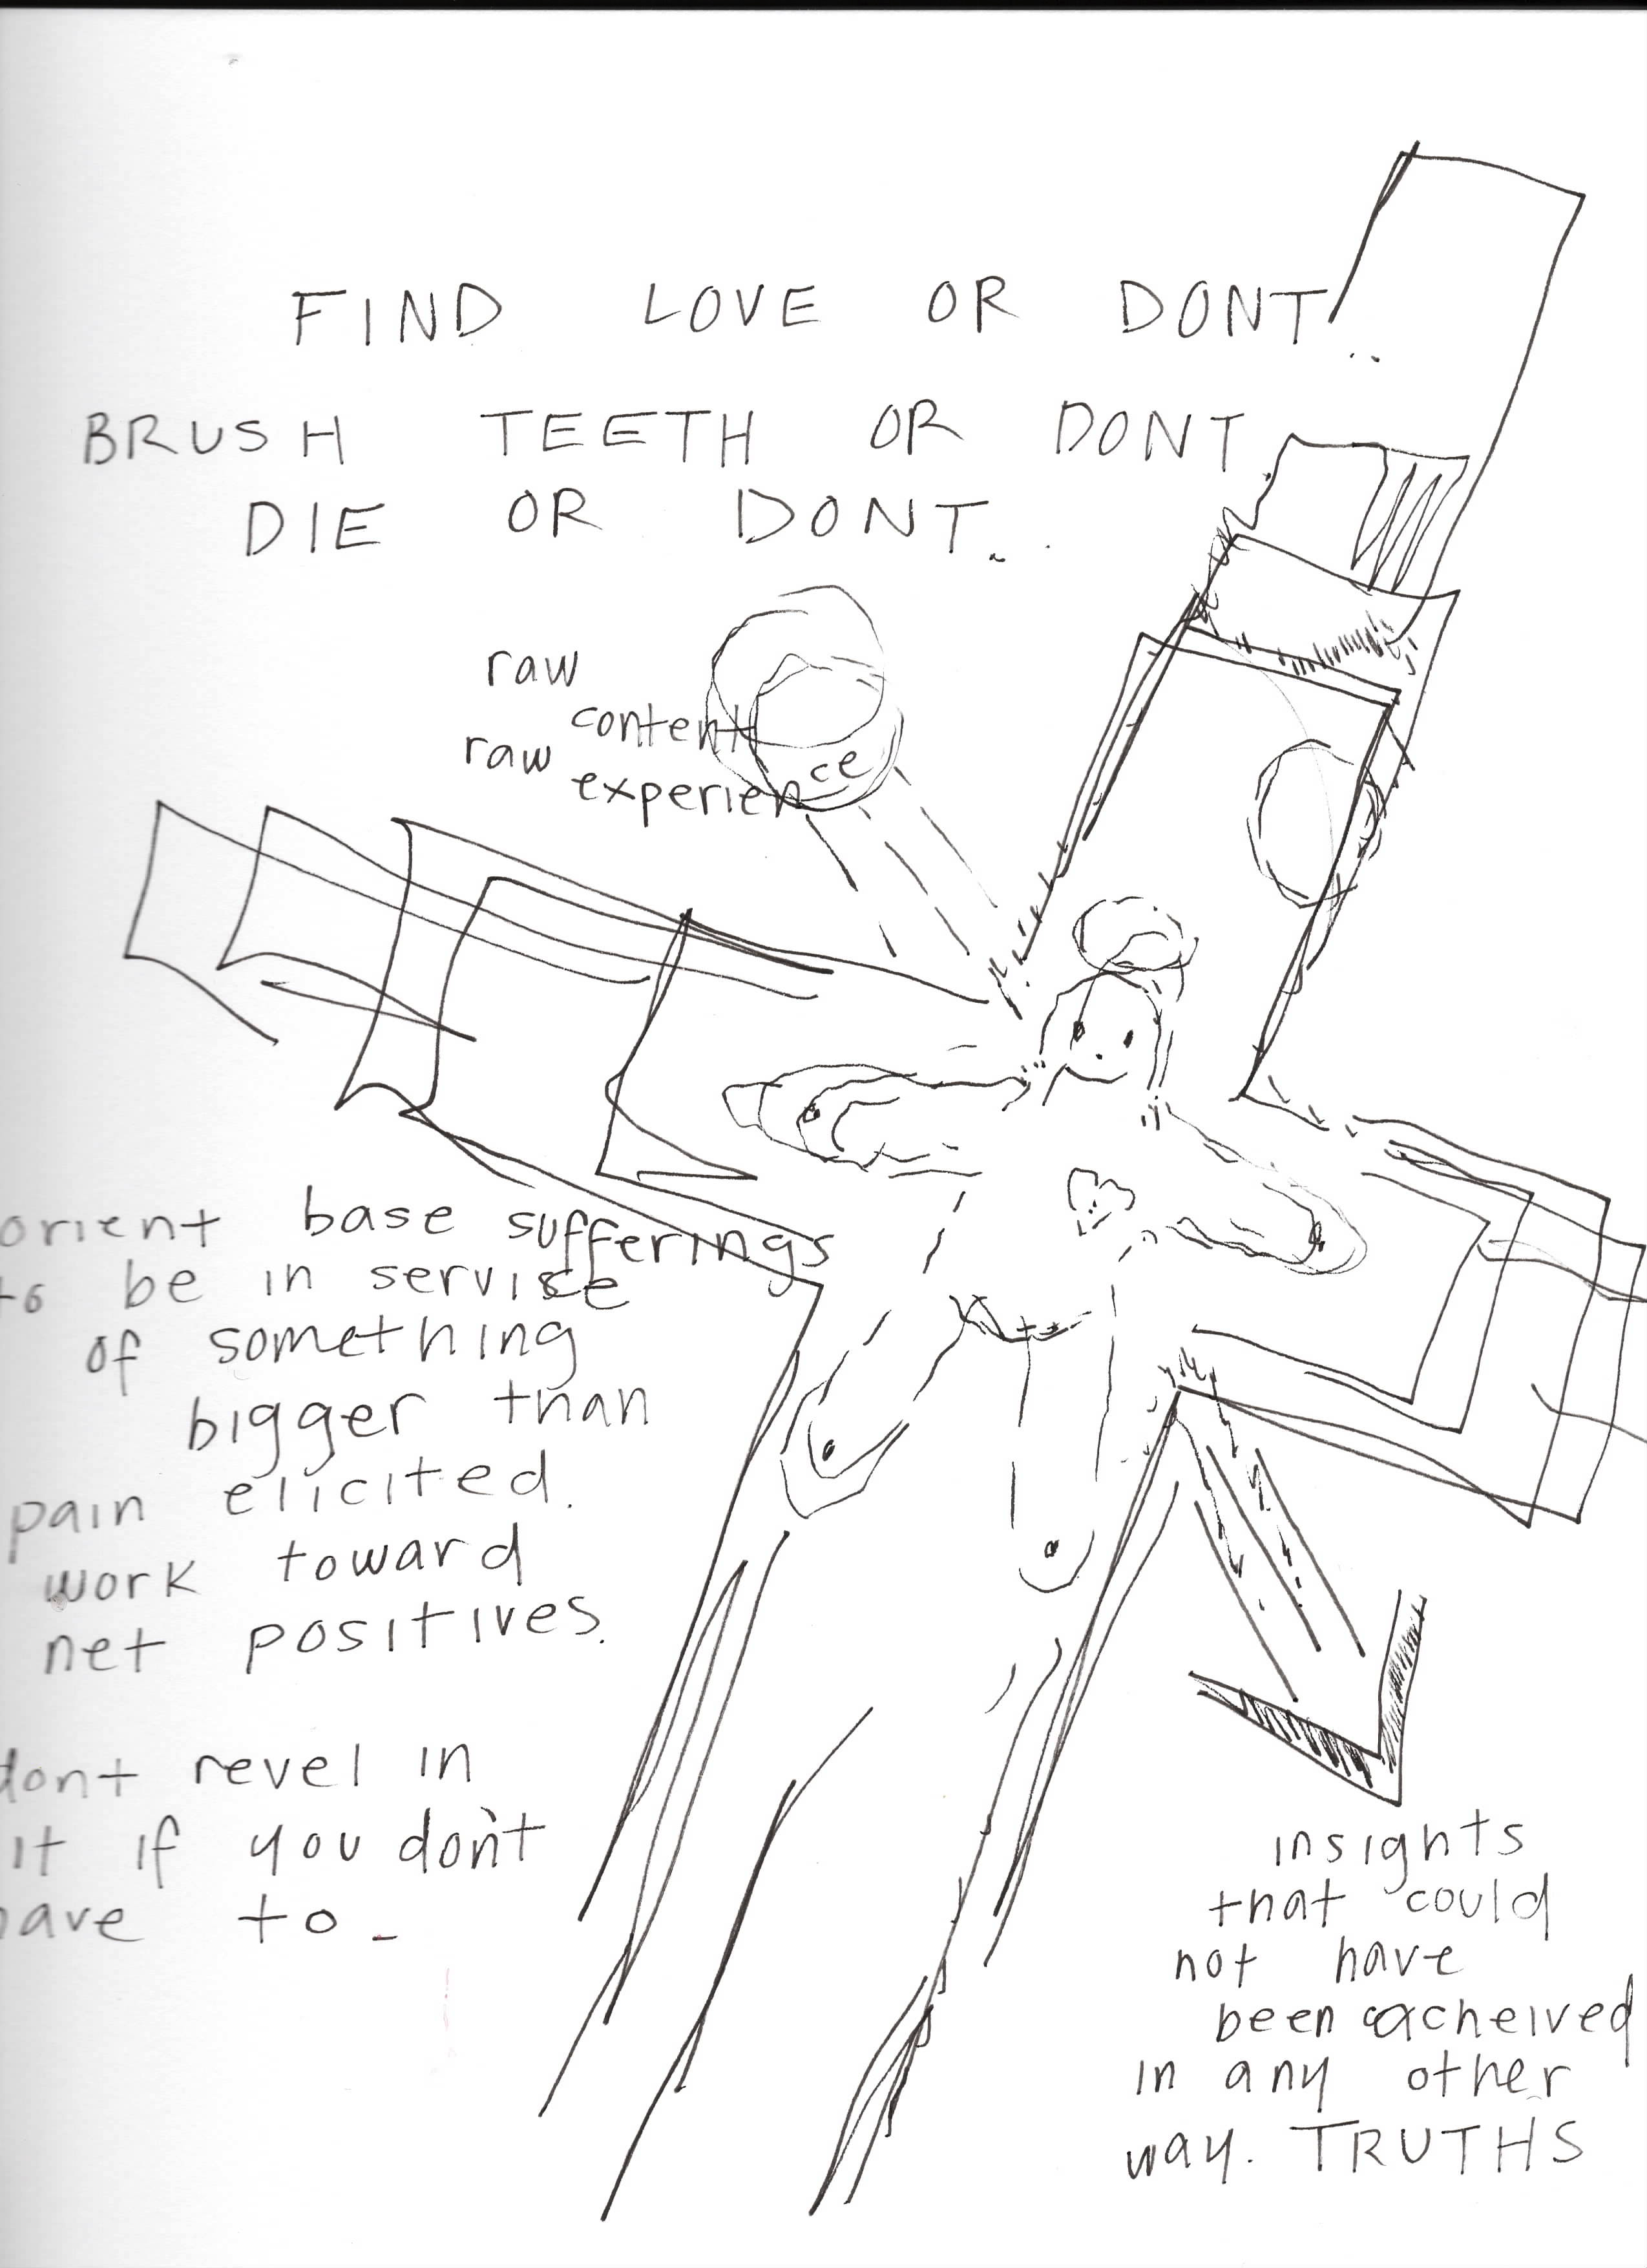 FIND LOVE OR DONT..
BRUSH TEETH OR DONT.
DIE OR DONT..
raw
content
raw
experience
orient base sufferings
to be in service
of something
bigger than
pain elicited.
work toward
net positives.
dont revel in
it if you don't
have to_
insights
that could
not have
been acheived
in any other
way. TRUTHS